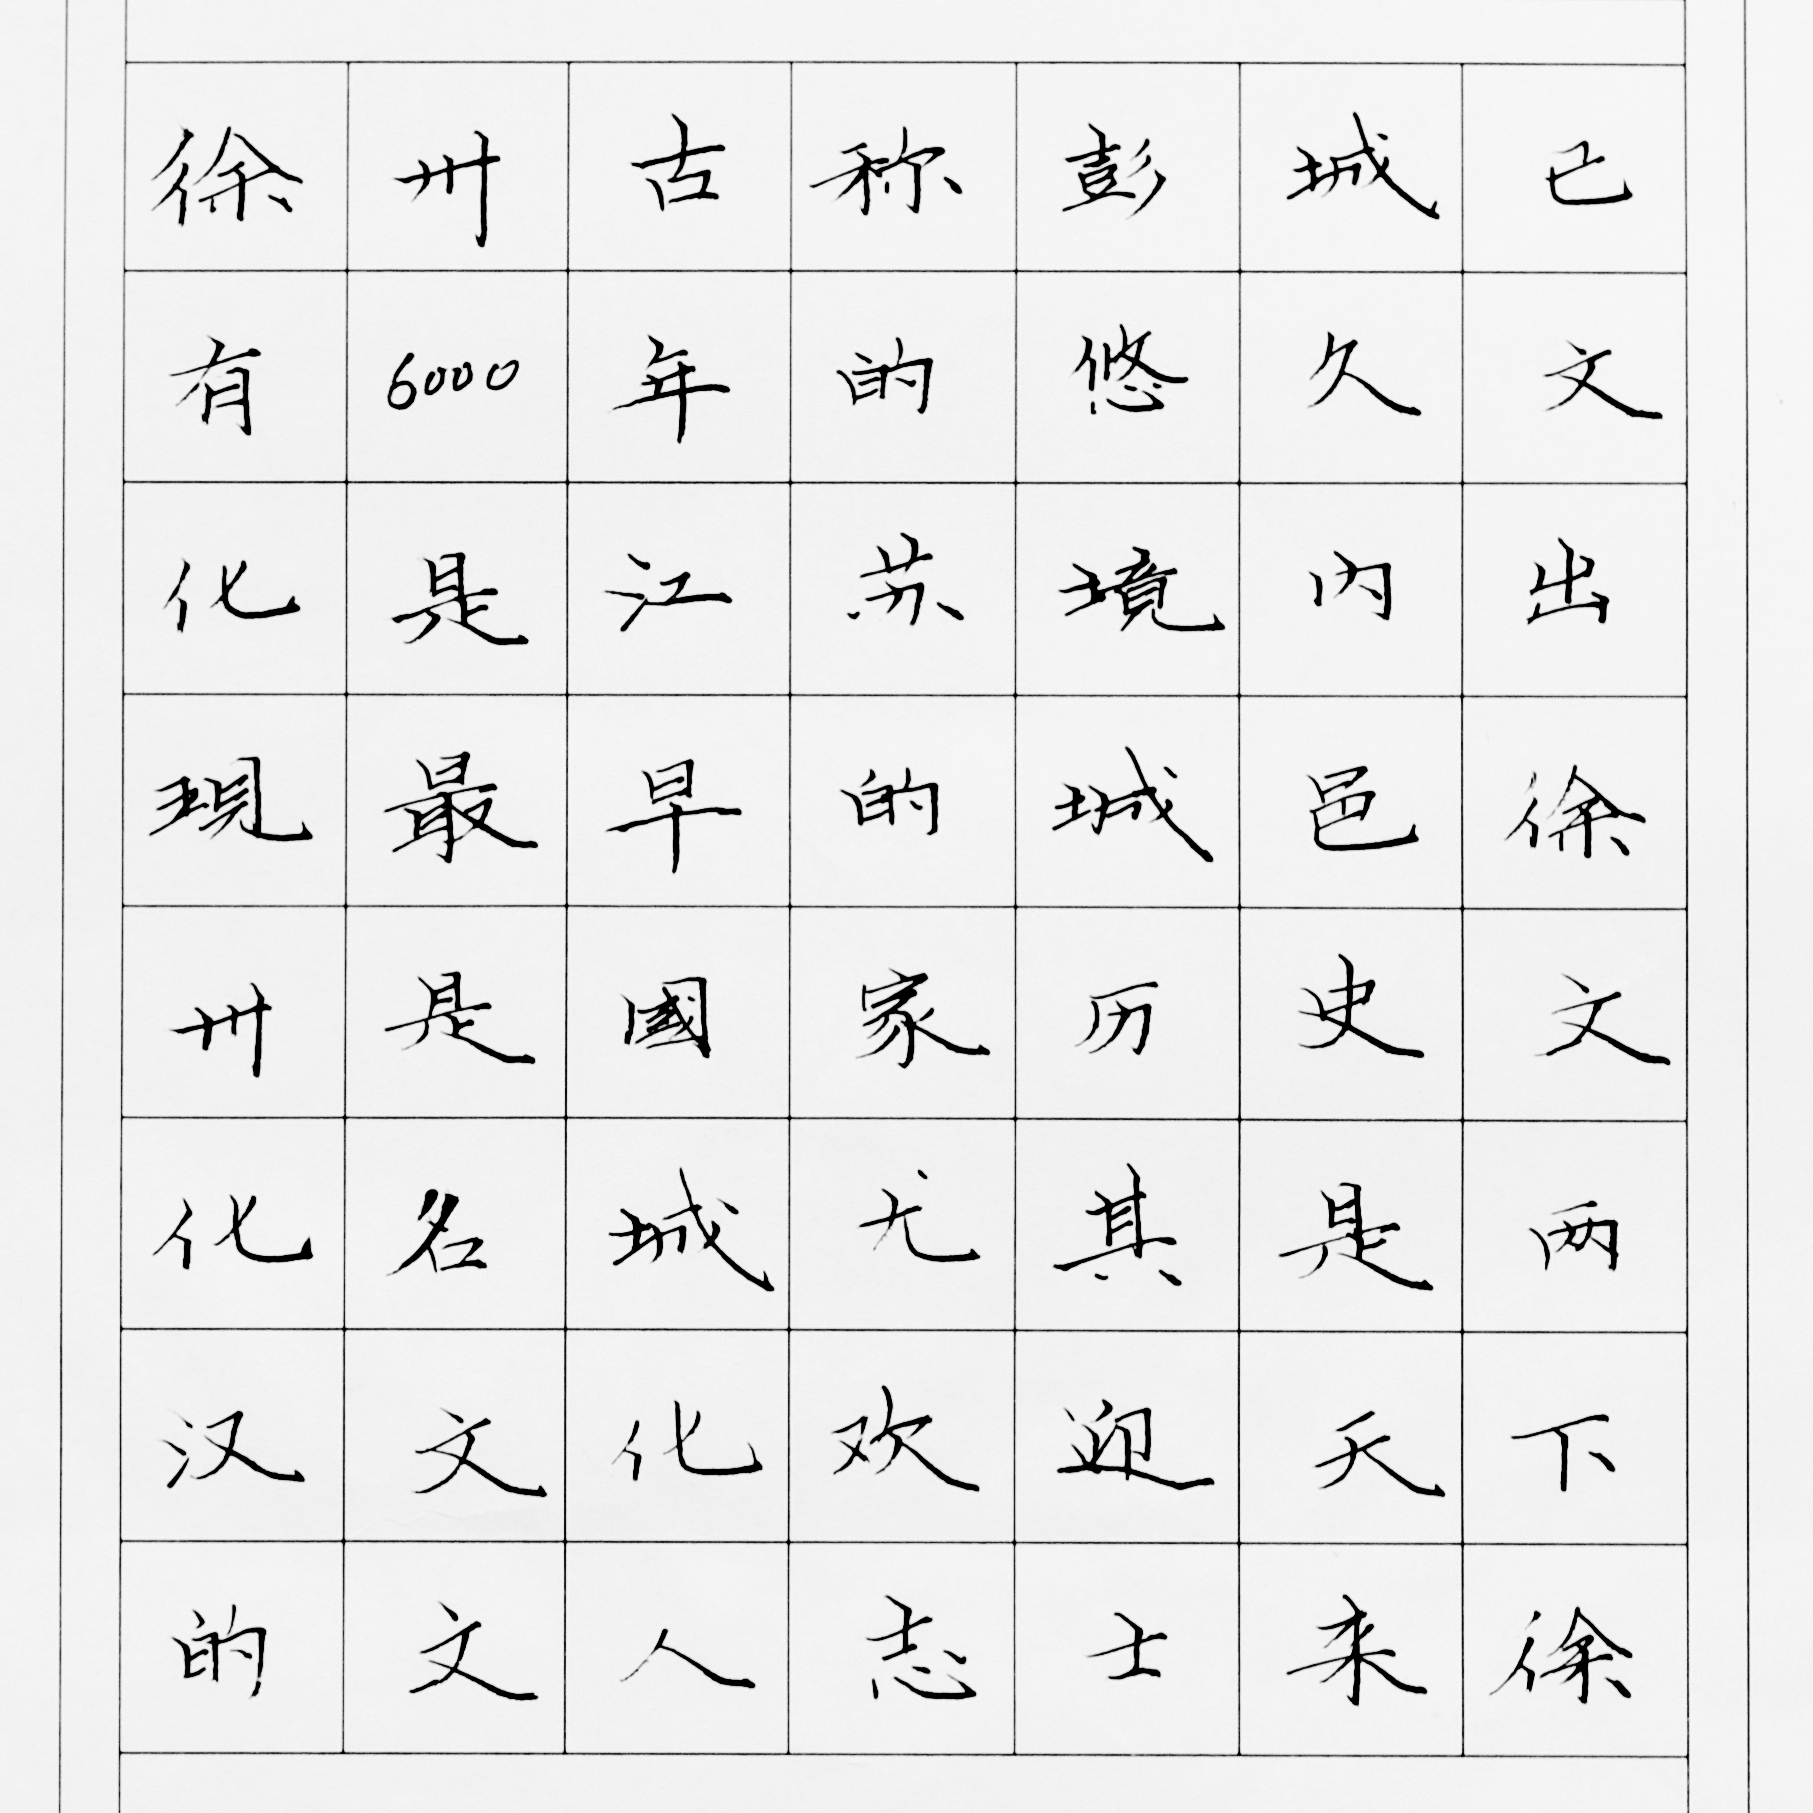 徐州古称彭城已
有6000年的悠久文
化是江苏境内出
現最早的城邑徐
州是國家历史文
化名城尤其是两
汉文化欢迎天下
的文人志士来徐